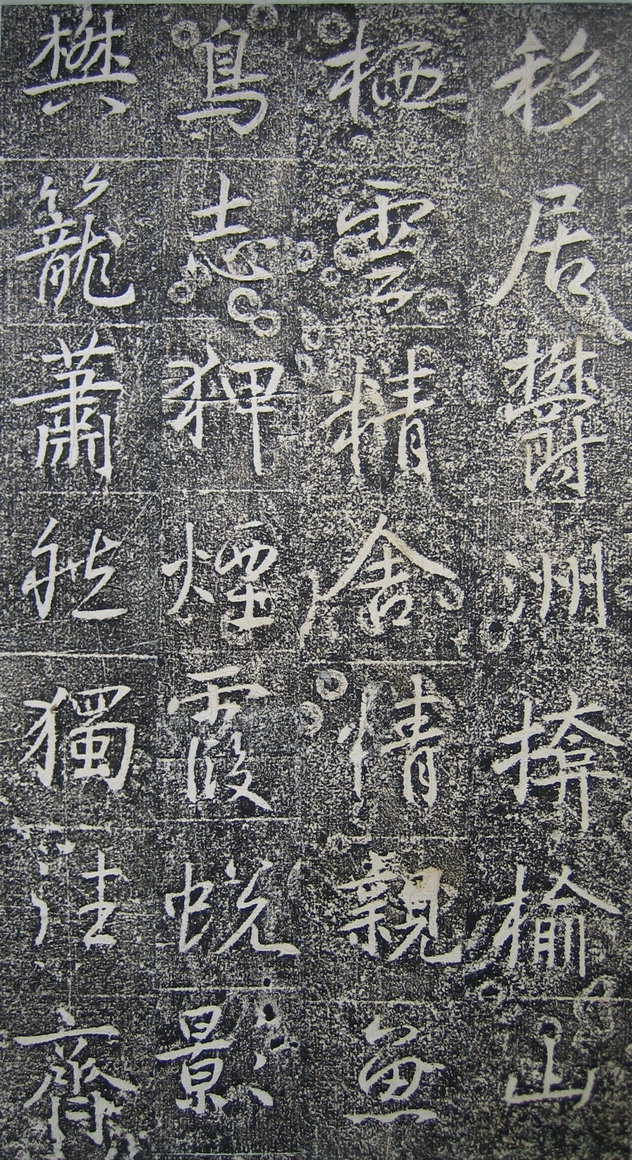 移居鬱洲揜榆山
栖雲精舍情親魚
鳥志狎煙霞蛻影
樊籠蕭然獨往齊